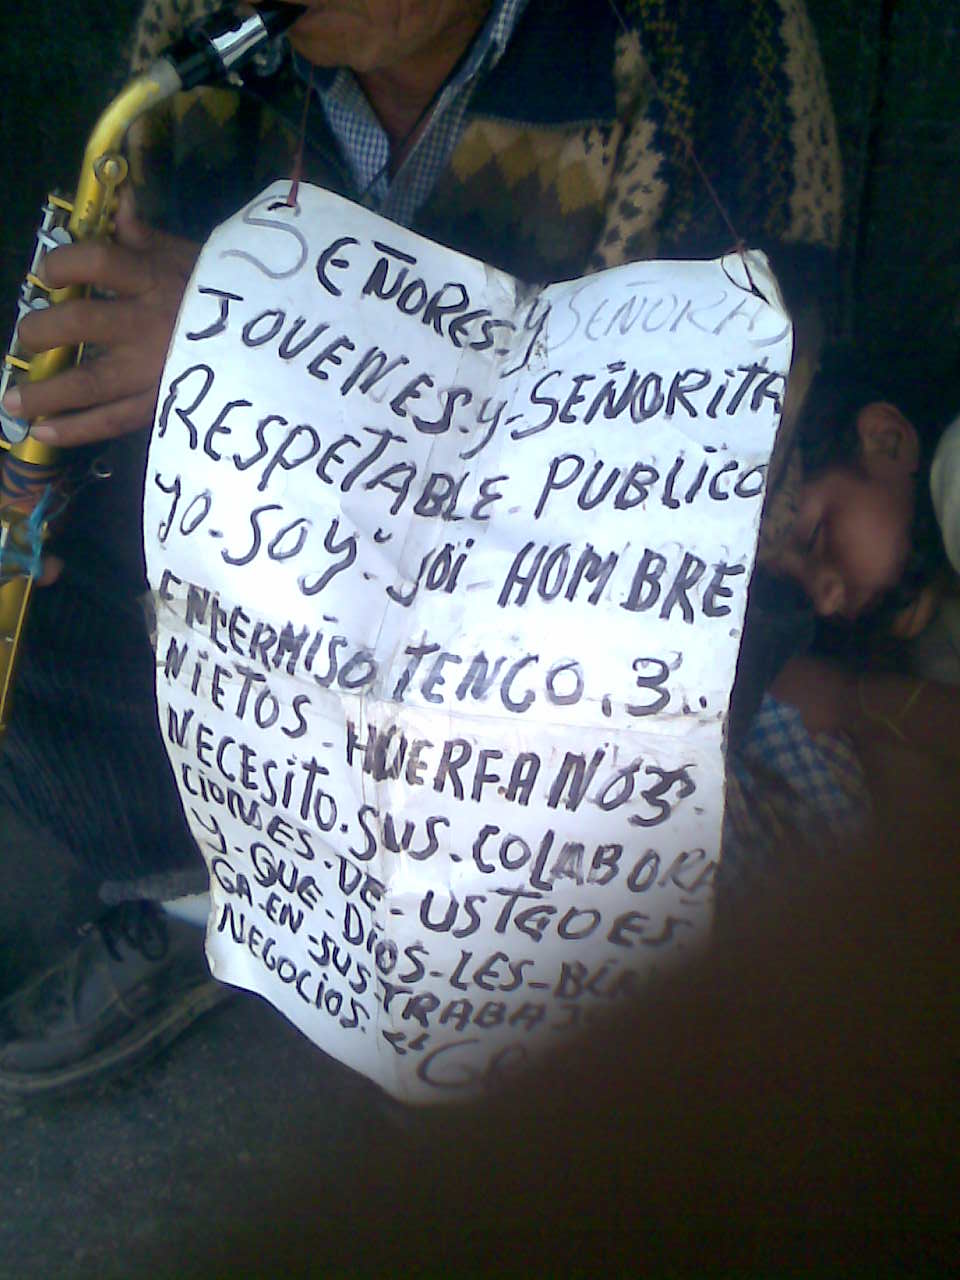 SEÑORES. y SEÑORAS
JOVENES. y. SEÑORITA
RESPETABLE. PUBLICO
yO. SOy. yoi - HOMBRE
ENFERMISO TENGO. 3..
NiETOS - HUERFANOS
NECESiTO. SUS. COLABORA
CIONES. DE - USTEDES.
y - QUE - DiOS - LES - BEN
GA. EN - SUS - TRABAJ
NEGOCiOS.